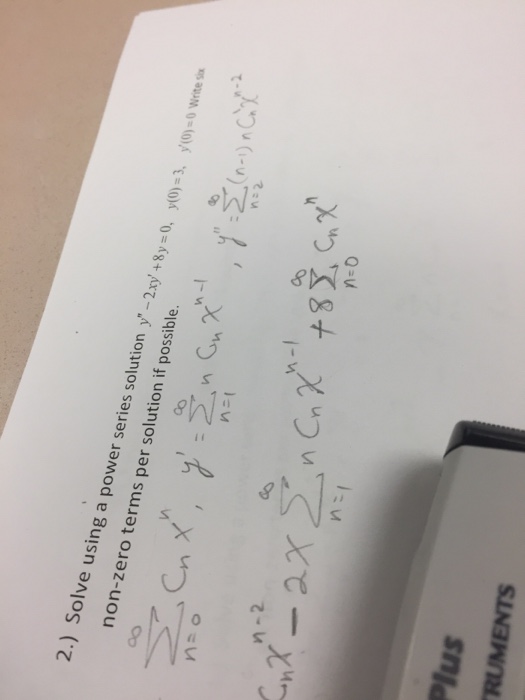 2.) Solve using a power series solution y" – 2xy' + 8y = 0, y(0) = 3, y'(0) = 0 Write six
non-zero terms per solution if possible.
∞ Σ n=0 Cn xⁿ , y' = ∞ Σ n=1 n Cn xⁿ⁻¹ , y" = ∞ Σ n=2 (n-1) n Cn xⁿ⁻²
Cn xⁿ⁻² – 2x ∞ Σ n=1 n Cn xⁿ⁻¹ + 8 ∞ Σ n=0 Cn xⁿ
Plus
RUMENTS